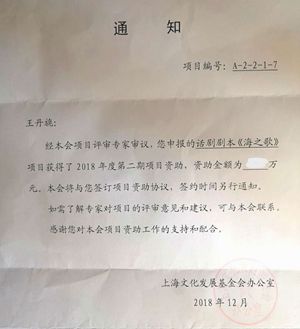 通 知
项目编号：A-2-2-1-7
王丹旎：
经本会项目评审专家审议，您申报的话剧剧本《海之歌》
项目获得了 2018 年度第二期项目资助，资助金额为 万
元。本会将与您签订项目资助协议，签约时间另行通知。
如需了解专家对项目的评审意见和建议，可与本会联系。
感谢您对本会项目资助工作的支持和配合。
上海文化发展基金会办公室
2018 年 12 月